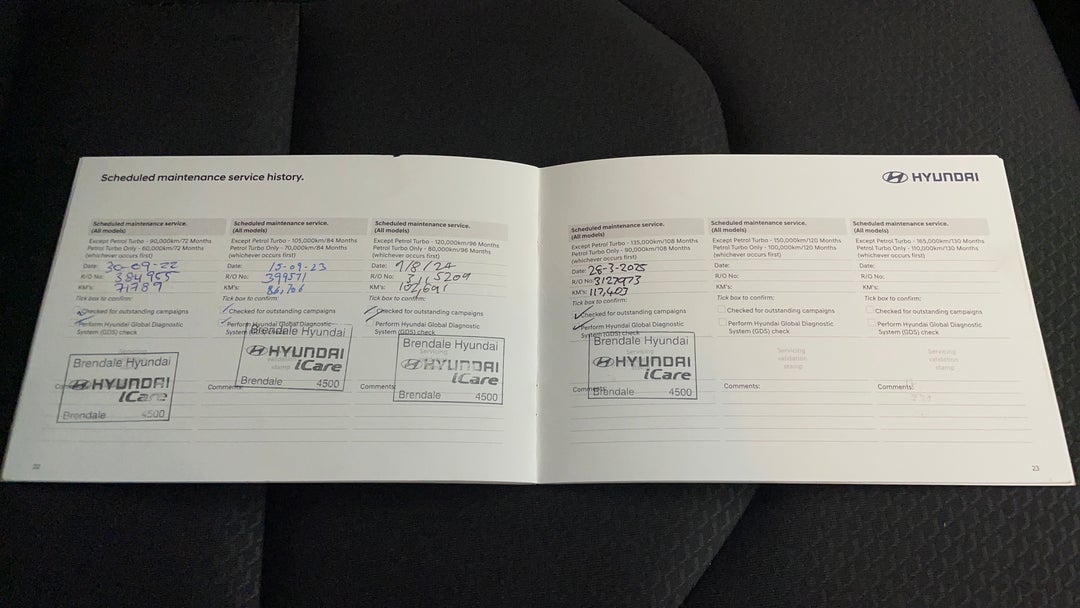 Scheduled maintenance service history.
HYUNDAI
Scheduled maintenance service.
(All models)
Except Petrol Turbo - 90,000km/72 Months
Petrol Turbo Only - 60,000km/72 Months
(whichever occurs first)
Date: 30-09-22
R/O No: 384955
KM's: 71789
Tick box to confirm:
Checked for outstanding campaigns
Perform Hyundai Global Diagnostic
System (GDS) check
Servicing
Brendale Hyundai
HYUNDAI
iCare
Brendale 4500
Scheduled maintenance service.
(All models)
Except Petrol Turbo - 105,000km/84 Months
Petrol Turbo Only - 70,000km/84 Months
(whichever occurs first)
Date: 15-09-23
R/O No: 399571
KM's: 86,706
Tick box to confirm:
Checked for outstanding campaigns
Perform Hyundai Global Diagnostic
System (GDS) check
Brendale Hyundai
HYUNDAI
iCare
Brendale 4500
Scheduled maintenance service.
(All models)
Except Petrol Turbo - 120,000km/96 Months
Petrol Turbo Only - 80,000km/96 Months
(whichever occurs first)
Date: 9/8/24
R/O No: 3115209
KM's: 102,691
Tick box to confirm:
Checked for outstanding campaigns
Perform Hyundai Global Diagnostic
System (GDS) check
Brendale Hyundai
Servicing
HYUNDAI
iCare
Comments:
Brendale 4500
22
Scheduled maintenance service.
(All models)
Except Petrol Turbo - 135,000km/108 Months
Petrol Turbo Only - 90,000km/108 Months
(whichever occurs first)
Date: 28-3-2025
R/O No: 3127973
KM's: 117,403
Tick box to confirm:
Checked for outstanding campaigns
Perform Hyundai Global Diagnostic
System (GDS) check
Brendale Hyundai
Servicing
HYUNDAI
iCare
Comments:
Brendale 4500
Scheduled maintenance service.
(All models)
Except Petrol Turbo - 150,000km/120 Months
Petrol Turbo Only - 100,000km/120 Months
(whichever occurs first)
Date:
R/O No:
KM's:
Tick box to confirm:
Checked for outstanding campaigns
Perform Hyundai Global Diagnostic
System (GDS) check
Servicing
validation
stamp
Comments:
Scheduled maintenance service.
(All models)
Except Petrol Turbo - 165,000km/130 Months
Petrol Turbo Only - 110,000km/130 Months
(whichever occurs first)
Date:
R/O No:
KM's:
Tick box to confirm:
Checked for outstanding campaigns
Perform Hyundai Global Diagnostic
System (GDS) check
Servicing
validation
stamp
Comments:
23